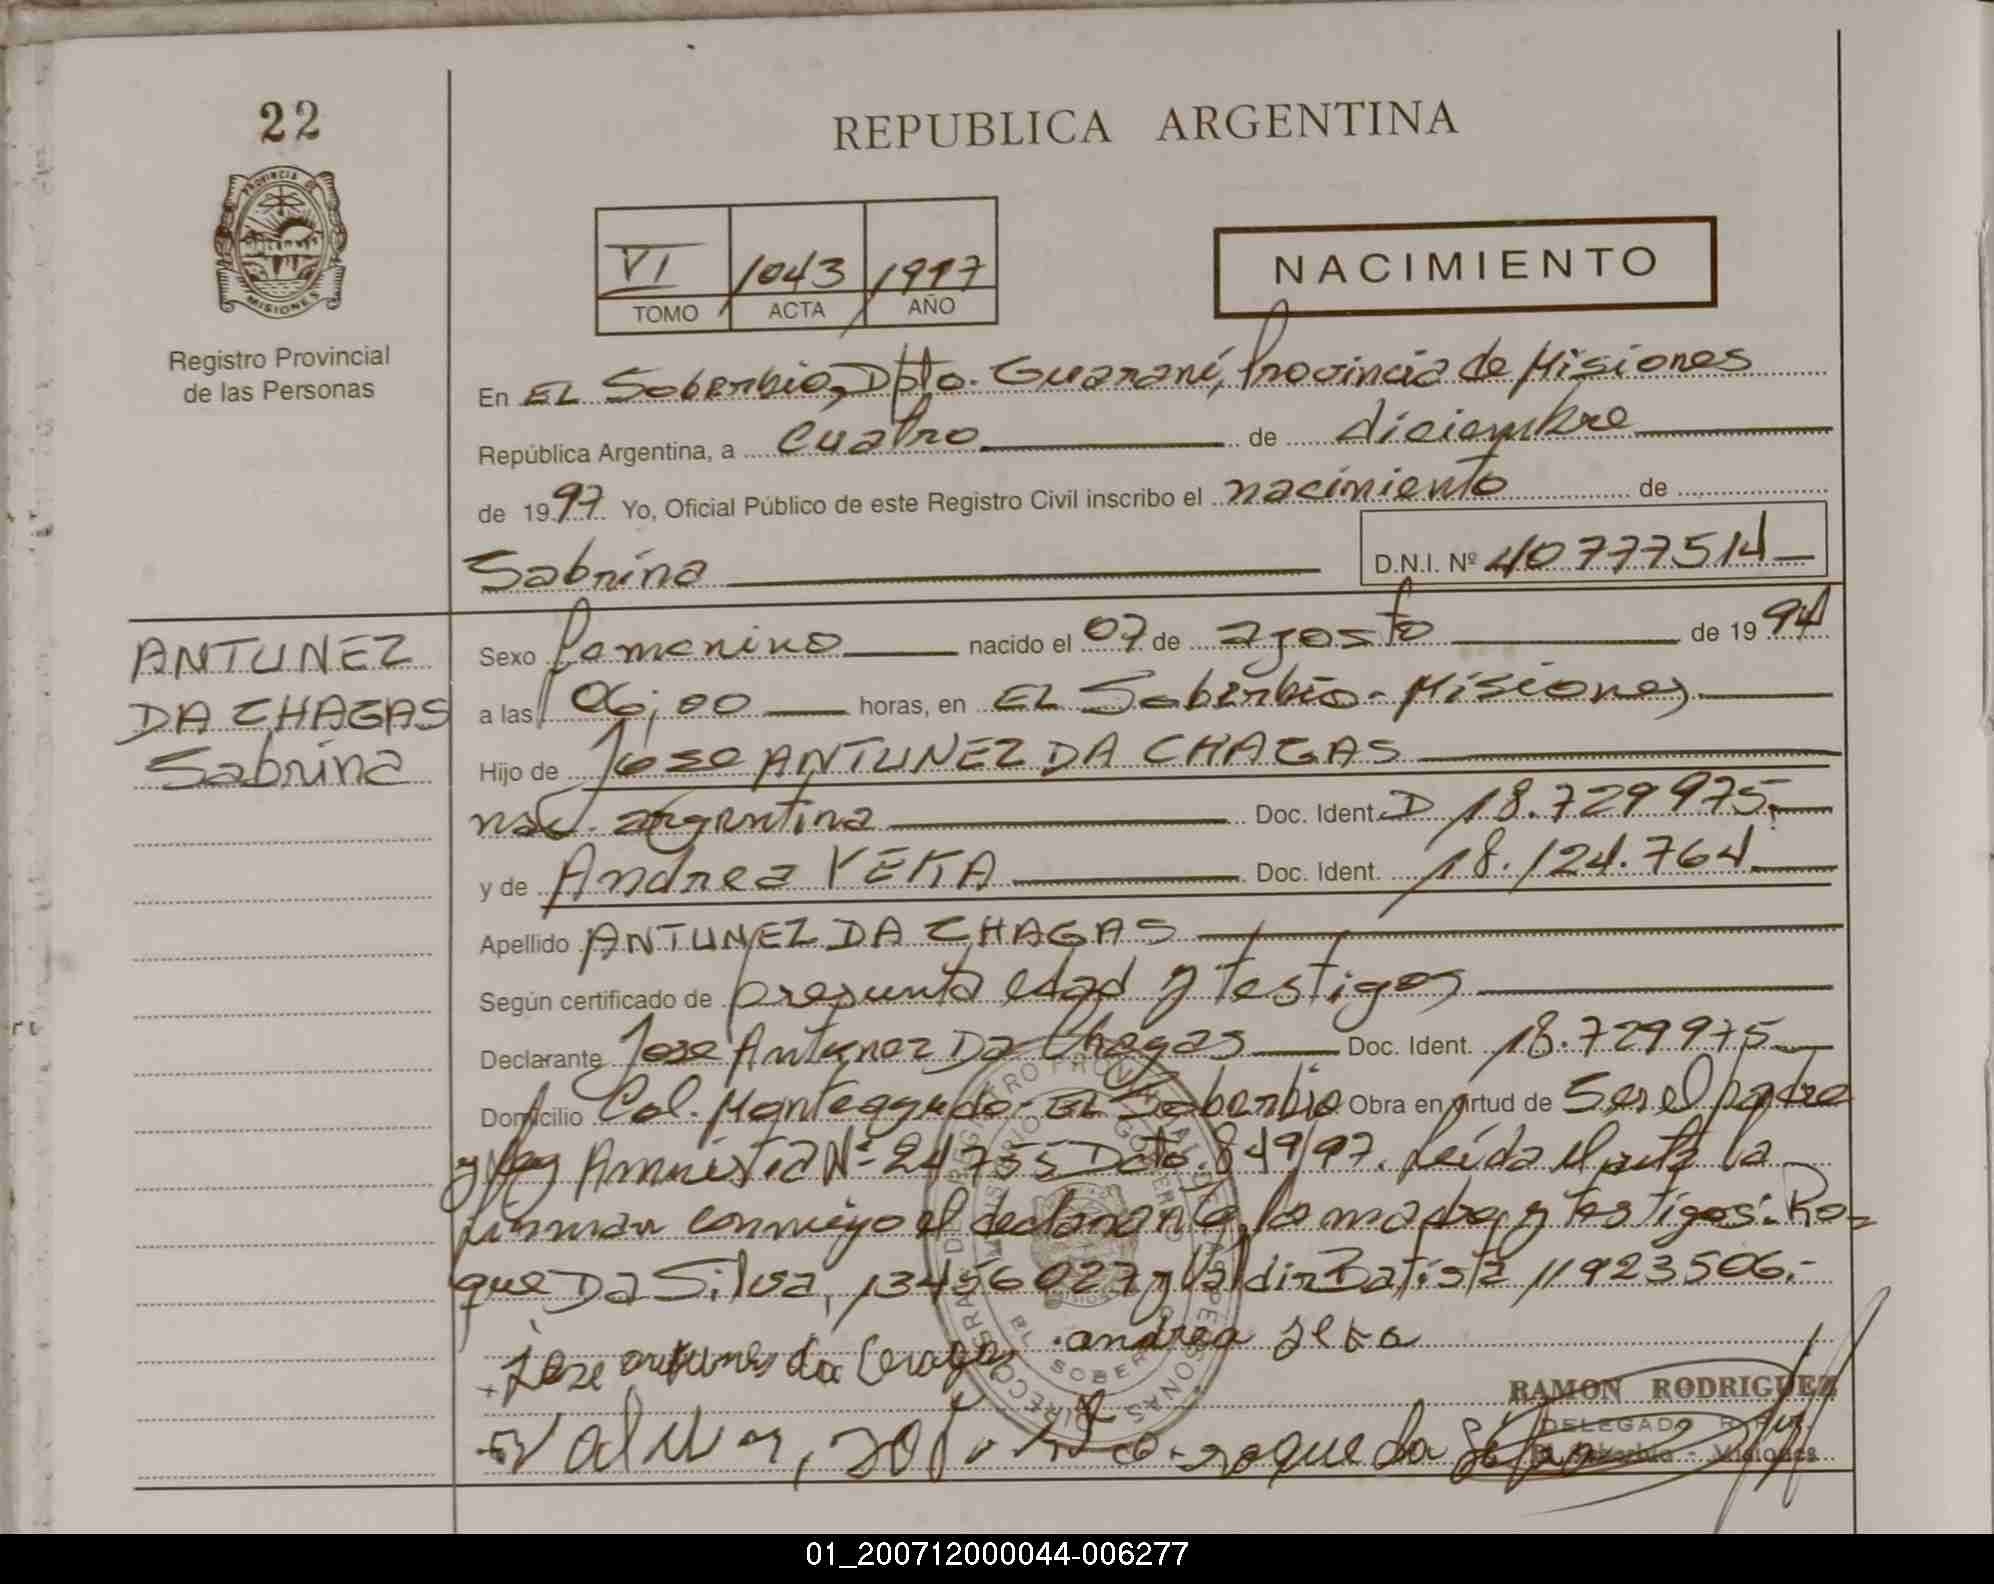 22
REPUBLICA ARGENTINA
PROVINCIA DE
MISIONES
VI 1043 1997
TOMO ACTA AÑO
NACIMIENTO
Registro Provincial
de las Personas
En EL Soberbio, Dpto. Guaraní, Provincia de Misiones
República Argentina, a cuatro de diciembre
de 1997 Yo, Oficial Público de este Registro Civil inscribo el nacimiento de
Sabrina D.N.I. Nº 40777514
ANTUNEZ
DA CHAGAS
Sabrina
Sexo femenino nacido el 07 de agosto de 1994
a las 06;00 horas, en EL Soberbio - Misiones
Hijo de Jose ANTUNEZ DA CHAGAS
nac. argentina Doc. Ident. D 18.729975.
y de Andrea YEKA Doc. Ident. 18.124.764
Apellido ANTUNEZ DA CHAGAS
Según certificado de presunta edad y testigos
Declarante Jose Antunez Da Chagas Doc. Ident. 18.729975
Domicilio Col. Monteagudo - EL Soberbio Obra en virtud de Ser el padre
y ley Amnistia Nº 24755 Dcto. 849/97. Leída el acta la
firman conmigo el declarante, la madre y testigos: Ro-
que Da Silva, 13456027 y Valdir Batista 11923506.-
Jose antunes da andrea
roque da Silva
RAMON RODRIGUEZ
DELEGADO
El Soberbio - Misiones
01_200712000044-006277